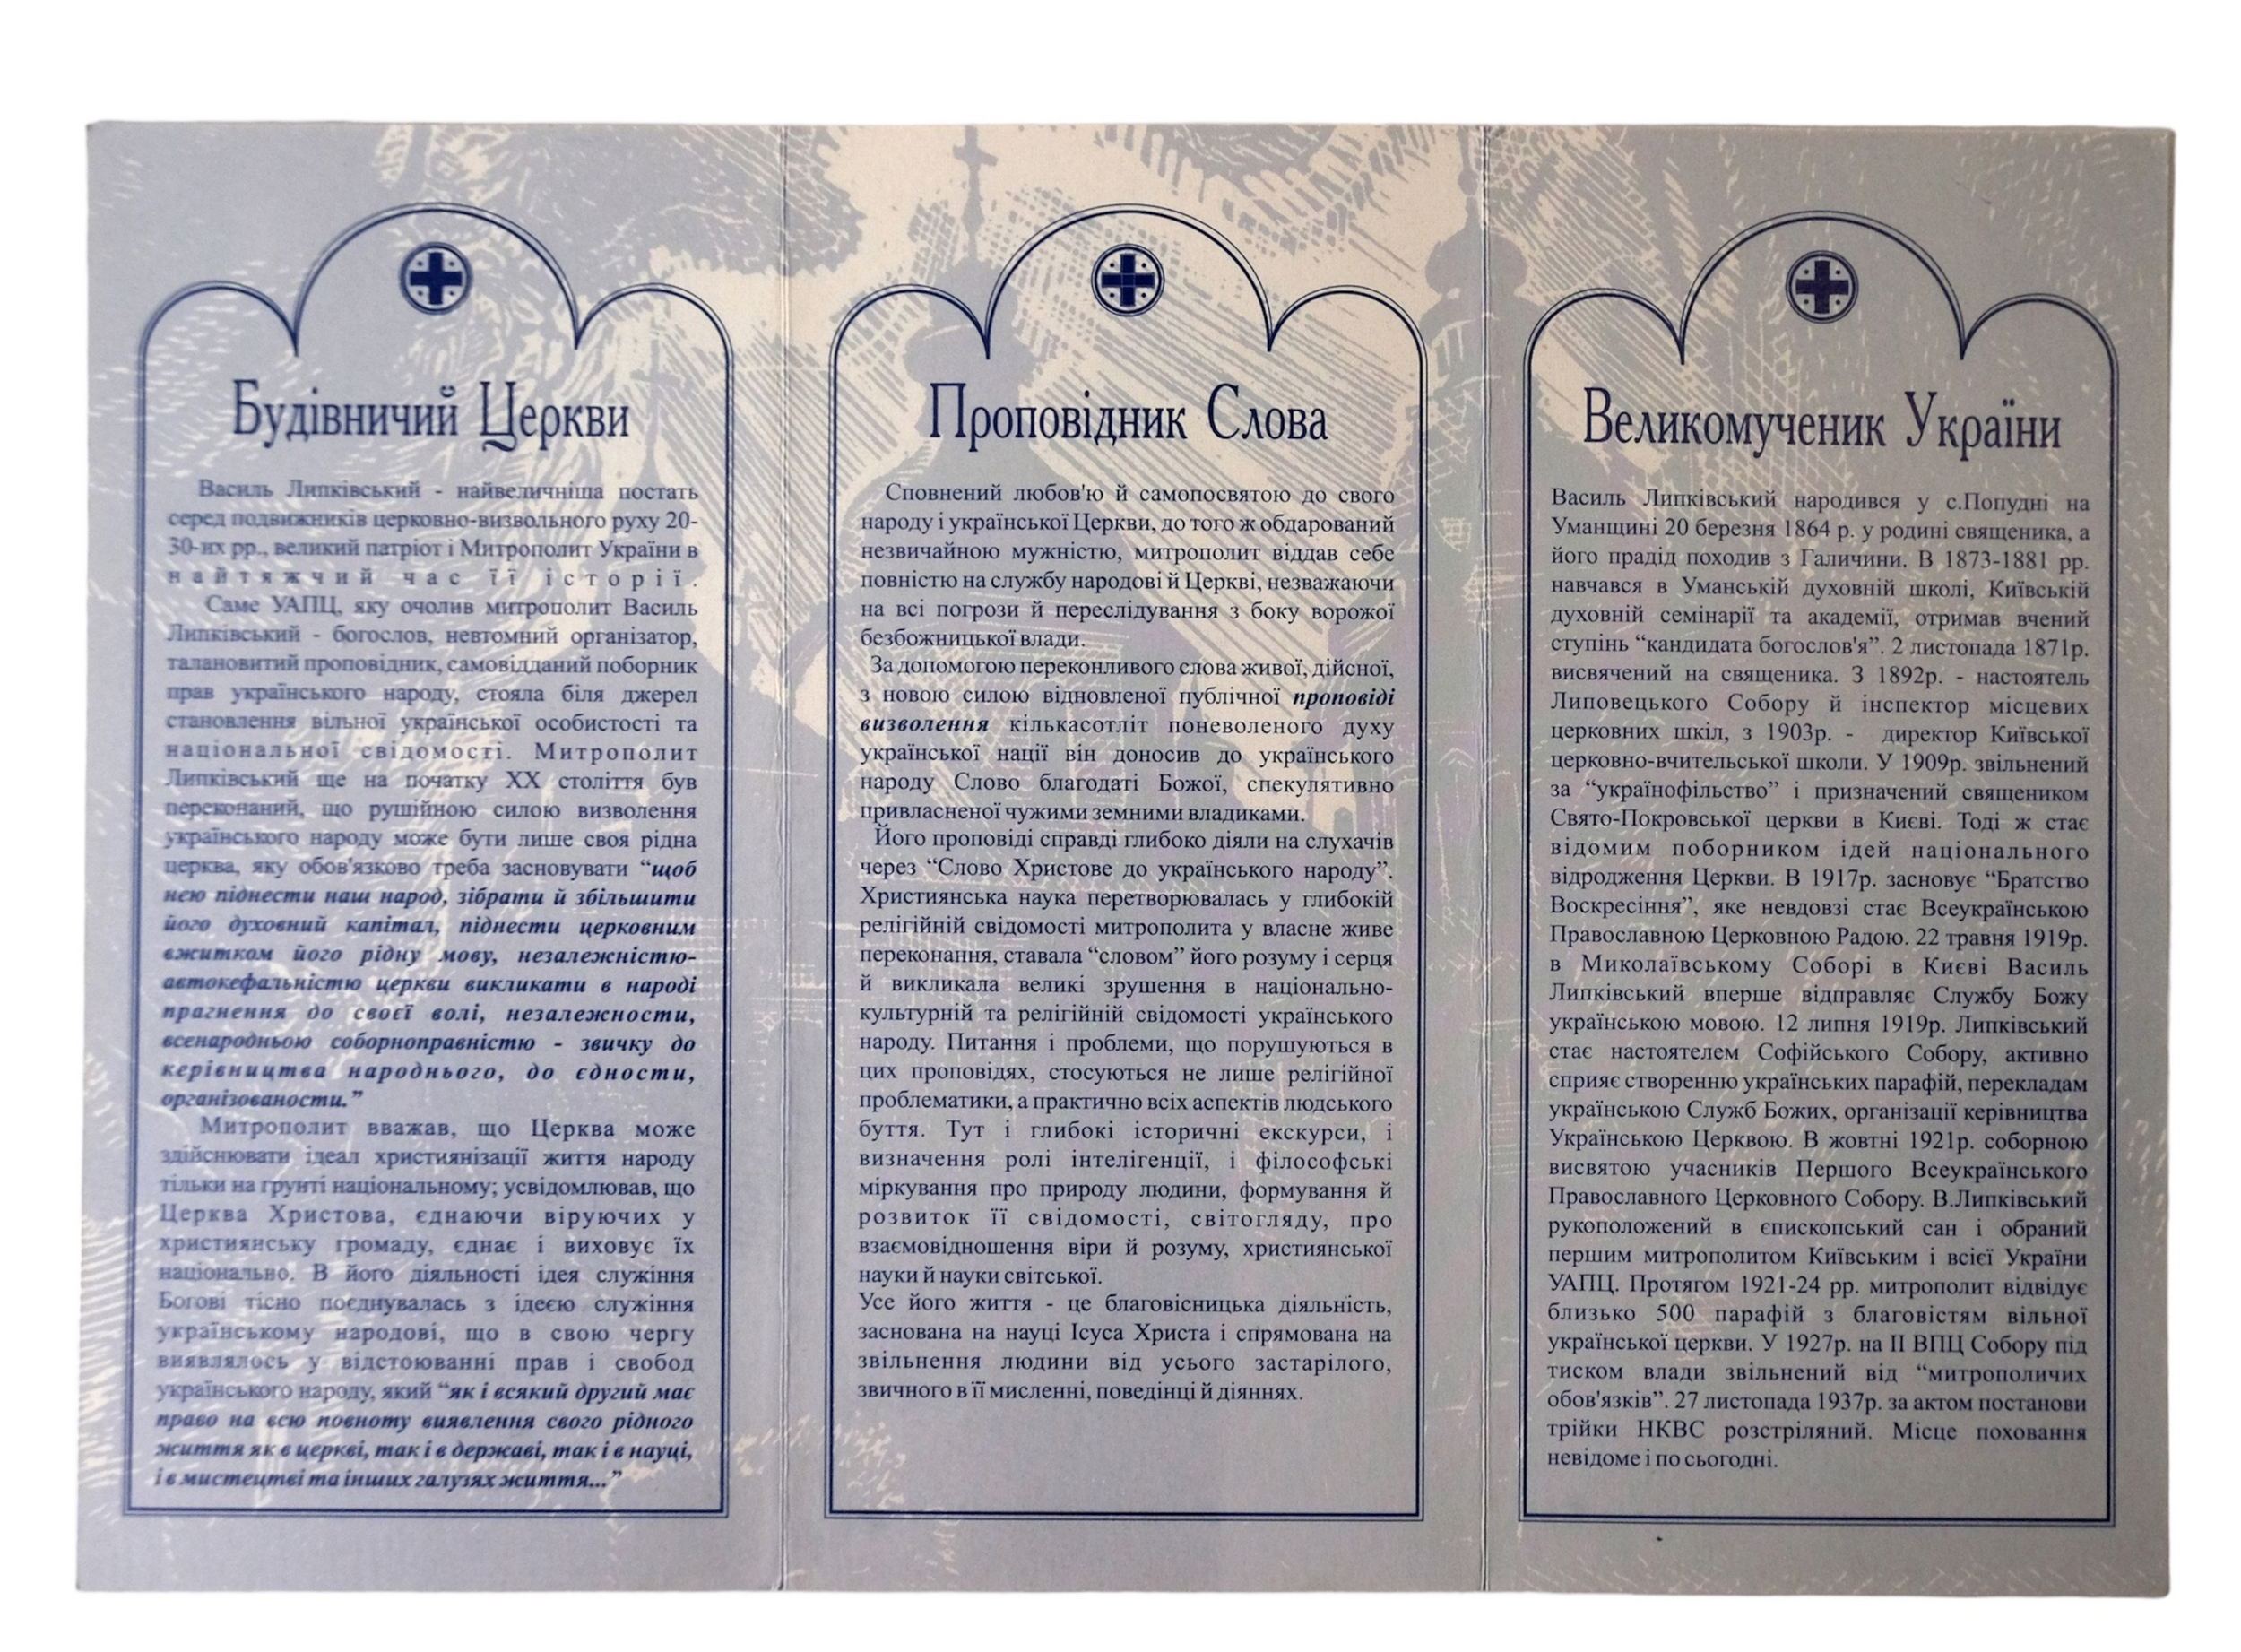 Будівничий Церкви
Василь Липківський - найвеличніша постать
серед подвижників церковно-визвольного руху 20-
30-их рр., великий патріот і Митрополит України в
найтяжчий час її історії.
Саме УАПЦ, яку очолив митрополит Василь
Липківський - богослов, невтомний організатор,
талановитий проповідник, самовідданий поборник
прав українського народу, стояла біля джерел
становлення вільної української особистості та
національної свідомості. Митрополит
Липківський ще на початку ХХ століття був
переконаний, що рушійною силою визволення
українського народу може бути лише своя рідна
церква, яку обов'язково треба засновувати “щоб
нею піднести наш народ, зібрати й збільшити
його духовний капітал, піднести церковним
вжитком його рідну мову, незалежністю-
автокефальністю церкви викликати в народі
прагнення до своєї волі, незалежности,
всенародньою соборноправністю - звичку до
керівництва народнього, до єдности,
організованости.”
Митрополит вважав, що Церква може
здійснювати ідеал християнізації життя народу
тільки на грунті національному; усвідомлював, що
Церква Христова, єднаючи віруючих у
християнську громаду, єднає і виховує їх
національно. В його діяльності ідея служіння
Богові тісно поєднувалась з ідеєю служіння
українському народові, що в свою чергу
виявлялось у відстоюванні прав і свобод
українського народу, який “як і всякий другий має
право на всю повноту виявлення свого рідного
життя як в церкві, так і в державі, так і в науці,
і в мистецтві та інших галузях життя...”
Проповідник Слова
Сповнений любов'ю й самопосвятою до свого
народу і української Церкви, до того ж обдарований
незвичайною мужністю, митрополит віддав себе
повністю на службу народові й Церкві, незважаючи
на всі погрози й переслідування з боку ворожої
безбожницької влади.
За допомогою переконливого слова живої, дійсної,
з новою силою відновленої публічної проповіді
визволення кількасотліт поневоленого духу
української нації він доносив до українського
народу Слово благодаті Божої, спекулятивно
привласненої чужими земними владиками.
Його проповіді справді глибоко діяли на слухачів
через “Слово Христове до українського народу”.
Християнська наука перетворювалась у глибокій
релігійній свідомості митрополита у власне живе
переконання, ставала “словом” його розуму і серця
й викликала великі зрушення в національно-
культурній та релігійній свідомості українського
народу. Питання і проблеми, що порушуються в
цих проповідях, стосуються не лише релігійної
проблематики, а практично всіх аспектів людського
буття. Тут і глибокі історичні екскурси, і
визначення ролі інтелігенції, і філософські
міркування про природу людини, формування й
розвиток її свідомості, світогляду, про
взаємовідношення віри й розуму, християнської
науки й науки світської.
Усе його життя - це благовісницька діяльність,
заснована на науці Ісуса Христа і спрямована на
звільнення людини від усього застарілого,
звичного в її мисленні, поведінці й діяннях.
Великомученик України
Василь Липківський народився у с.Попудні на
Уманщині 20 березня 1864 р. у родині священика, а
його прадід походив з Галичини. В 1873-1881 рр.
навчався в Уманській духовній школі, Київській
духовній семінарії та академії, отримав вчений
ступінь “кандидата богослов'я”. 2 листопада 1871р.
висвячений на священика. З 1892р. - настоятель
Липовецького Собору й інспектор місцевих
церковних шкіл, з 1903р. - директор Київської
церковно-вчительської школи. У 1909р. звільнений
за “українофільство” і призначений священиком
Свято-Покровської церкви в Києві. Тоді ж стає
відомим поборником ідей національного
відродження Церкви. В 1917р. засновує “Братство
Воскресіння”, яке невдовзі стає Всеукраїнською
Православною Церковною Радою. 22 травня 1919р.
в Миколаївському Соборі в Києві Василь
Липківський вперше відправляє Службу Божу
українською мовою. 12 липня 1919р. Липківський
стає настоятелем Софійського Собору, активно
сприяє створенню українських парафій, перекладам
українською Служб Божих, організації керівництва
Українською Церквою. В жовтні 1921р. соборною
висвятою учасників Першого Всеукраїнського
Православного Церковного Собору. В.Липківський
рукоположений в єпископський сан і обраний
першим митрополитом Київським і всієї України
УАПЦ. Протягом 1921-24 рр. митрополит відвідує
близько 500 парафій з благовістям вільної
української церкви. У 1927р. на ІІ ВПЦ Собору під
тиском влади звільнений від “митрополичих
обов'язків”. 27 листопада 1937р. за актом постанови
трійки НКВС розстріляний. Місце поховання
невідоме і по сьогодні.